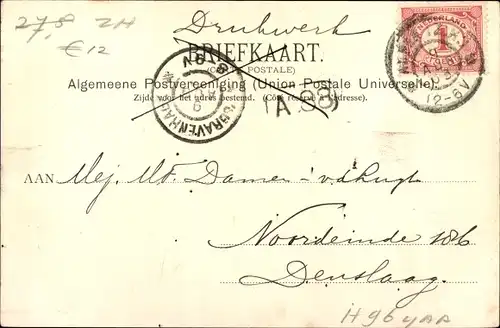 27,8 ZH
€ 12
Drukwerk
BRIEFKAART.
(CARTE POSTALE)
Algemeene Postvereeniging (Union Postale Universelle).
Zijde voor het adres bestemd. (Côté réservé à l'adresse).
NEDERLAND
1
12-6V
'S GRAVENHAGE
A
AAN Mej. M. Damen - v d Kugt
Noordeinde 186
Denhaag.
H96yaa